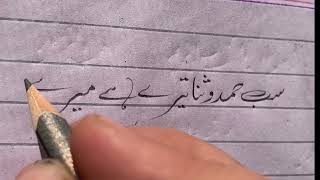 سب حمد و ثنا تیرے ہے میرے